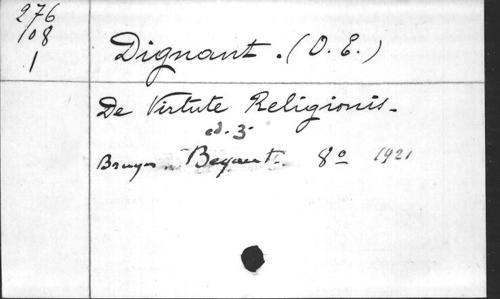 276
108
1
Dignant. (O. E.)
De Virtute Religionis.
ed. 3
Bruges. Beyaert. 8º 1921